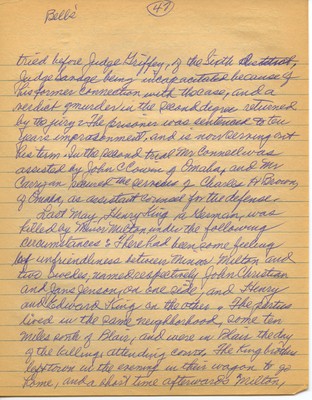 Bell's
47
tried before Judge Griffey, of the Sixth district,
Judge Savage being incapacitated because of
his former connection with the case, and a
verdict of murder in the second degree returned
by the jury. The prisoner was sentenced to ten
years imprisonment, and is now serving out
his term. In the second trial Mr Connell was
assisted by John C Cowin of Omaha, and Mr
Carrigan secured the services of Charles H Brown,
of Omaha, as assistant counsel for the defense.
Last May, Henry King, a German, was
killed by Thenor Milton under the following
circumstances: There had been some feeling
of unfriendliness between Thenor Milton and
two Swedes, named respectively John Christian
and Jans Jenson, on one side, and Henry
and Edward King on the other. The parties
lived in the same neighborhood, some ten
miles north of Blair, and were in Blair the day
of the killing, attending court. The King brothers
left town in the evening in their wagon to go
home, and a short time afterwards Milton,